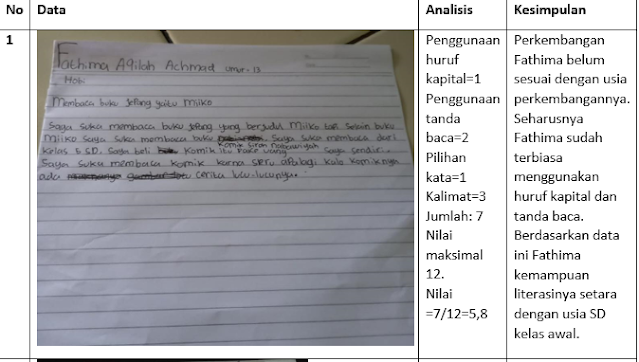 No Data Analisis Kesimpulan
1
Fathima Aqilah Achmad umur. 13
Hobi
Membaca buku Jepang yaitu Miiko
Saya suka membaca buku Jepang yang berjudul Miiko tapi selain buku
Miiko saya suka membaca buku Komik Sirah Nabawiyah. Saya suka membaca dari
kelas 5 SD. Saya beli Komik itu pake uang saya sendiri.
Saya suka membaca komik karna seru. apalagi kalo komiknya
ada cerita lucu-lucunya.
Penggunaan
huruf
kapital=1
Penggunaan
tanda
baca=2
Pilihan
kata=1
Kalimat=3
Jumlah: 7
Nilai
maksimal
12.
Nilai
=7/12=5,8
Perkembangan
Fathima belum
sesuai dengan usia
perkembangannya.
Seharusnya
Fathima sudah
terbiasa
menggunakan
huruf kapital dan
tanda baca.
Berdasarkan data
ini Fathima
kemampuan
literasinya setara
dengan usia SD
kelas awal.